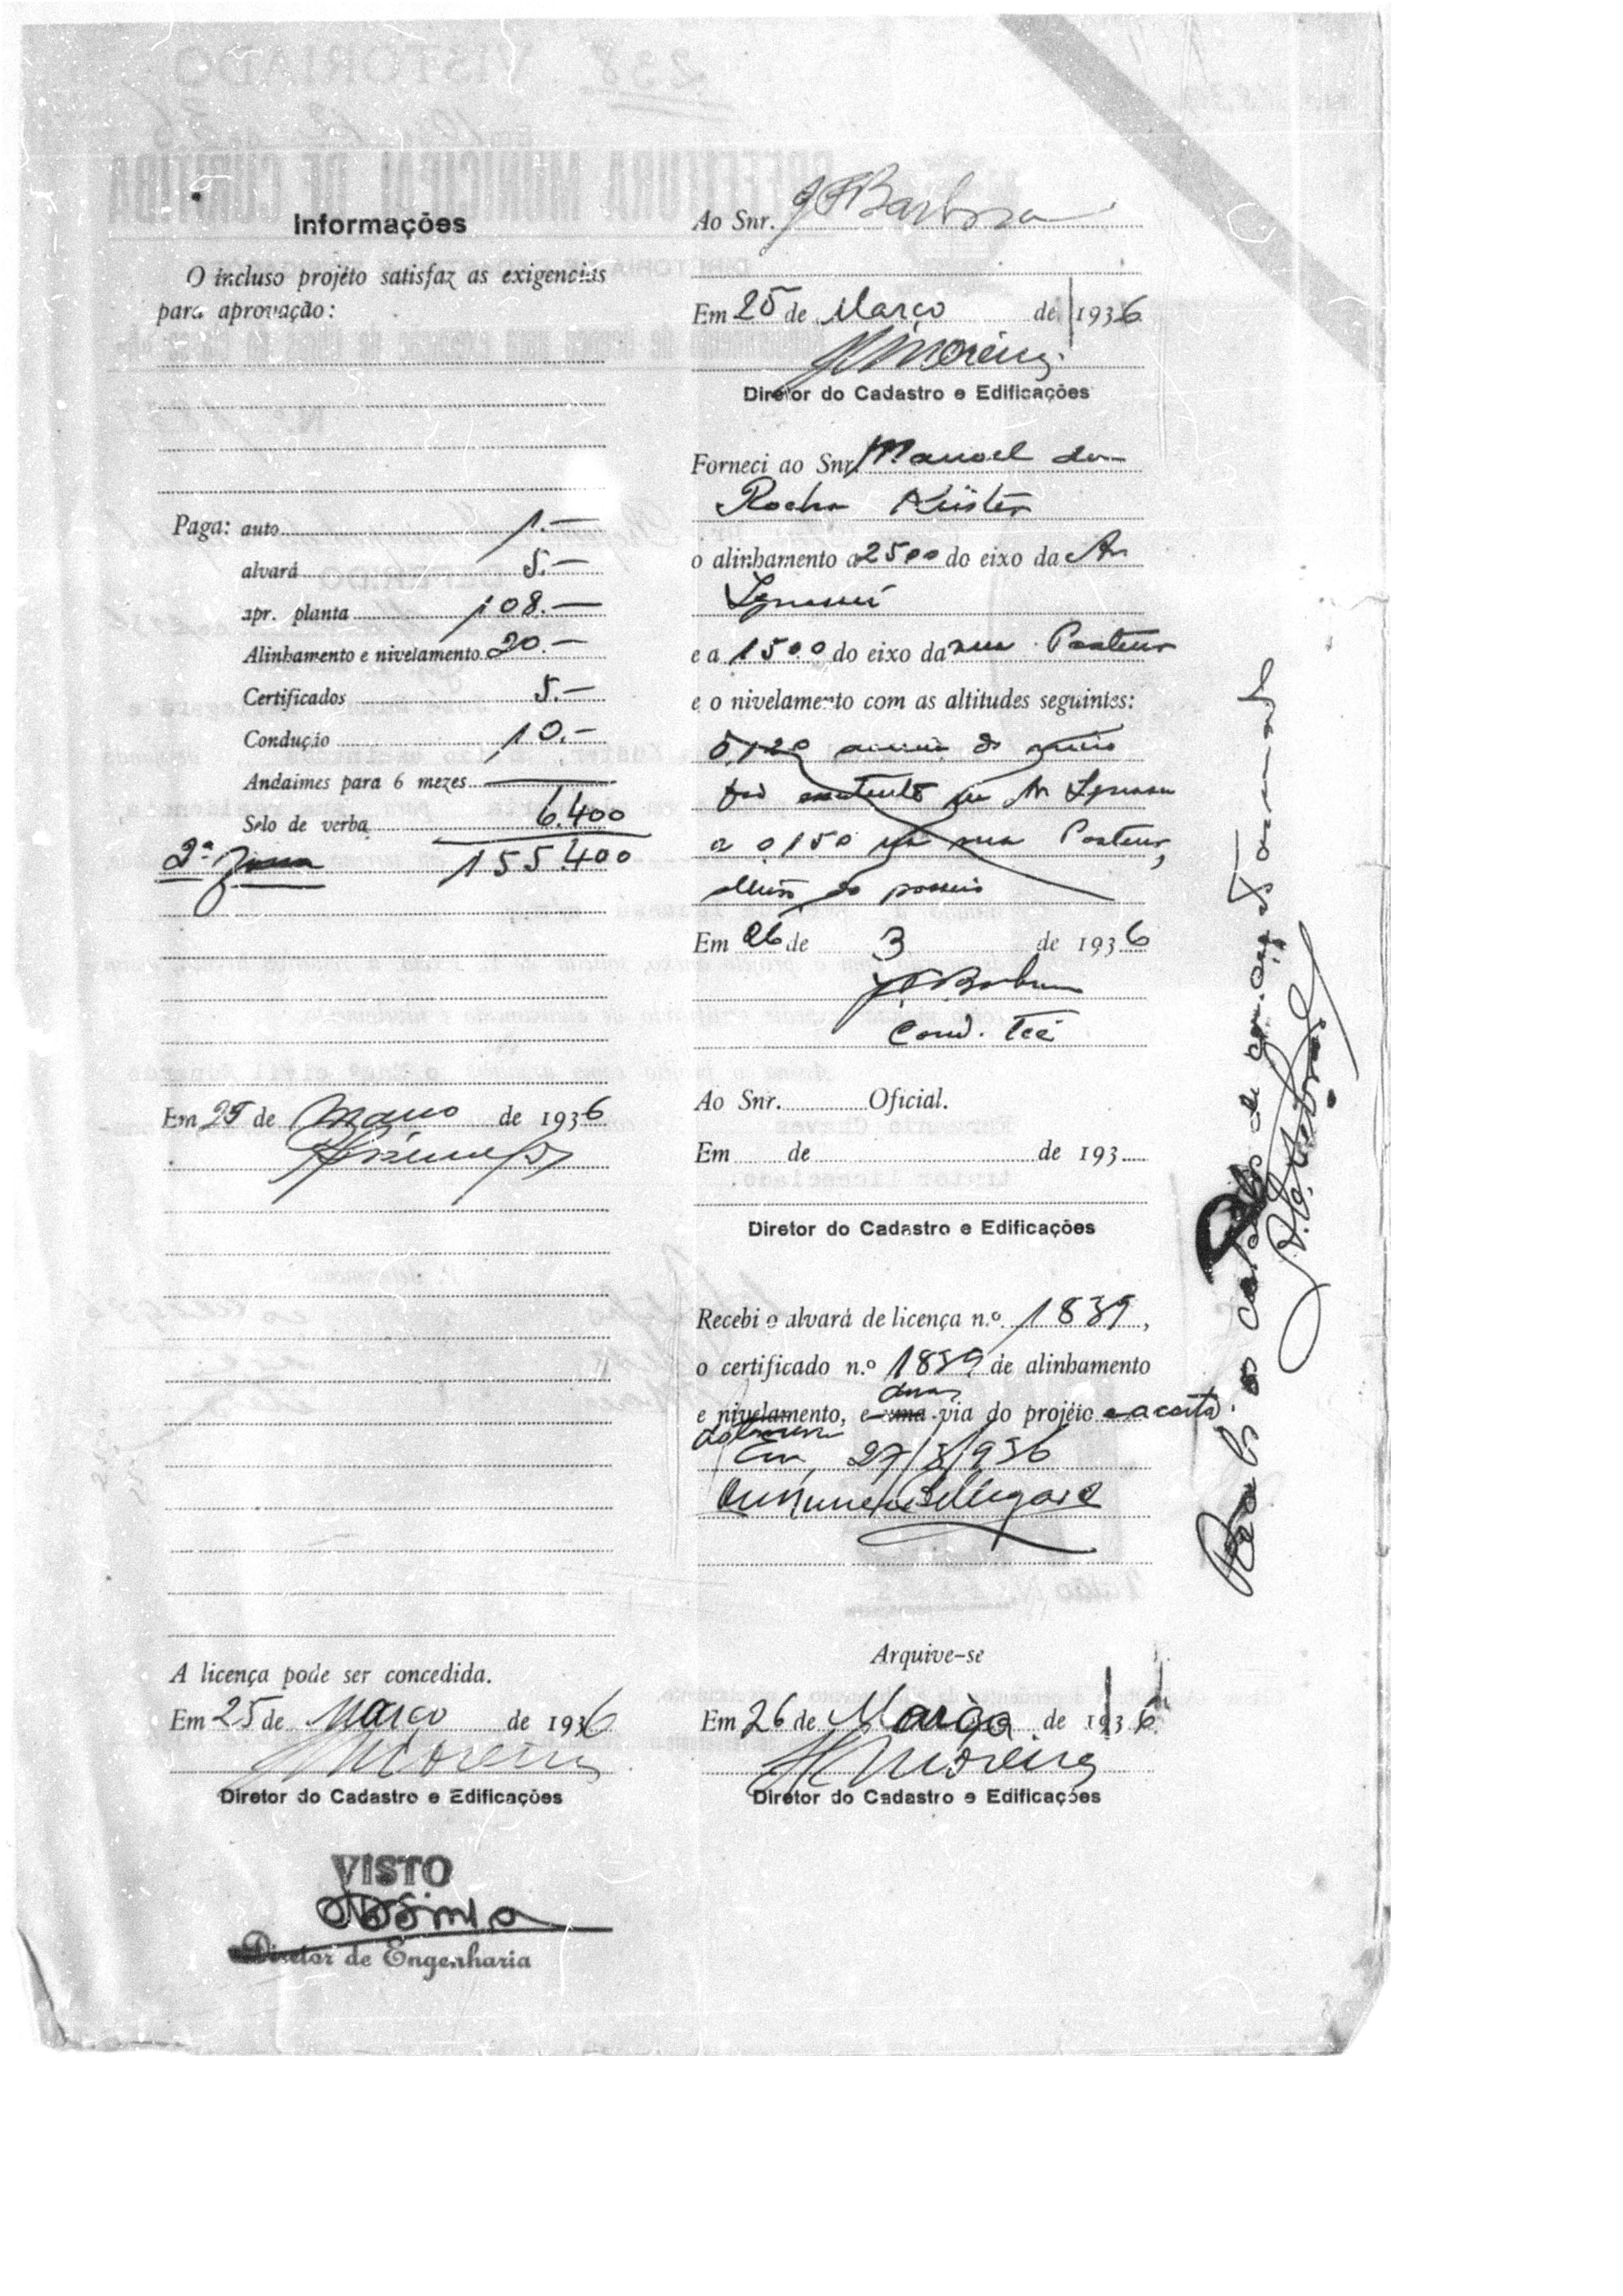 Informações
O incluso projéto satisfaz as exigencias
para aprovação:
Paga: auto 1.—
alvará 5.—
apr. planta 108.—
Alinhamento e nivelamento 20.—
Certificados 5.—
Condução 10.—
Andaimes para 6 mezes —
Selo de verba 6.400
2ª 155.400
Em 25 de Março de 1936
A licença pode ser concedida.
Em 25 de Março de 1936
Moreira
Diretor do Cadastro e Edificações
VISTO
Diretor de Engenharia
Ao Snr. J F Barbosa
Em 25 de Março de 1936
Moreira
Diretor do Cadastro e Edificações
Forneci ao Snr. Manoel da
Rocha Küster
o alinhamento a 2500 do eixo da Av
Iguassú
e a 1500 do eixo da rua Pasteur
e o nivelamento com as altitudes seguintes:
0,120 acima do
Av Iguassu
a 0,150 na rua Pasteur,
passeio
Em 26 de 3 de 1936
J F Barbosa
Cond. Tec
Ao Snr. Oficial.
Em de de 193
Diretor do Cadastro e Edificações
Recebi o alvará de licença n.º 1839,
o certificado n.º 1839 de alinhamento
duas
e nivelamento, e uma via do projéto e a carta
Em, 27/3/936
Arquive-se
Em 26 de Março de 1936
Moreira
Diretor do Cadastro e Edificações
Recebi os